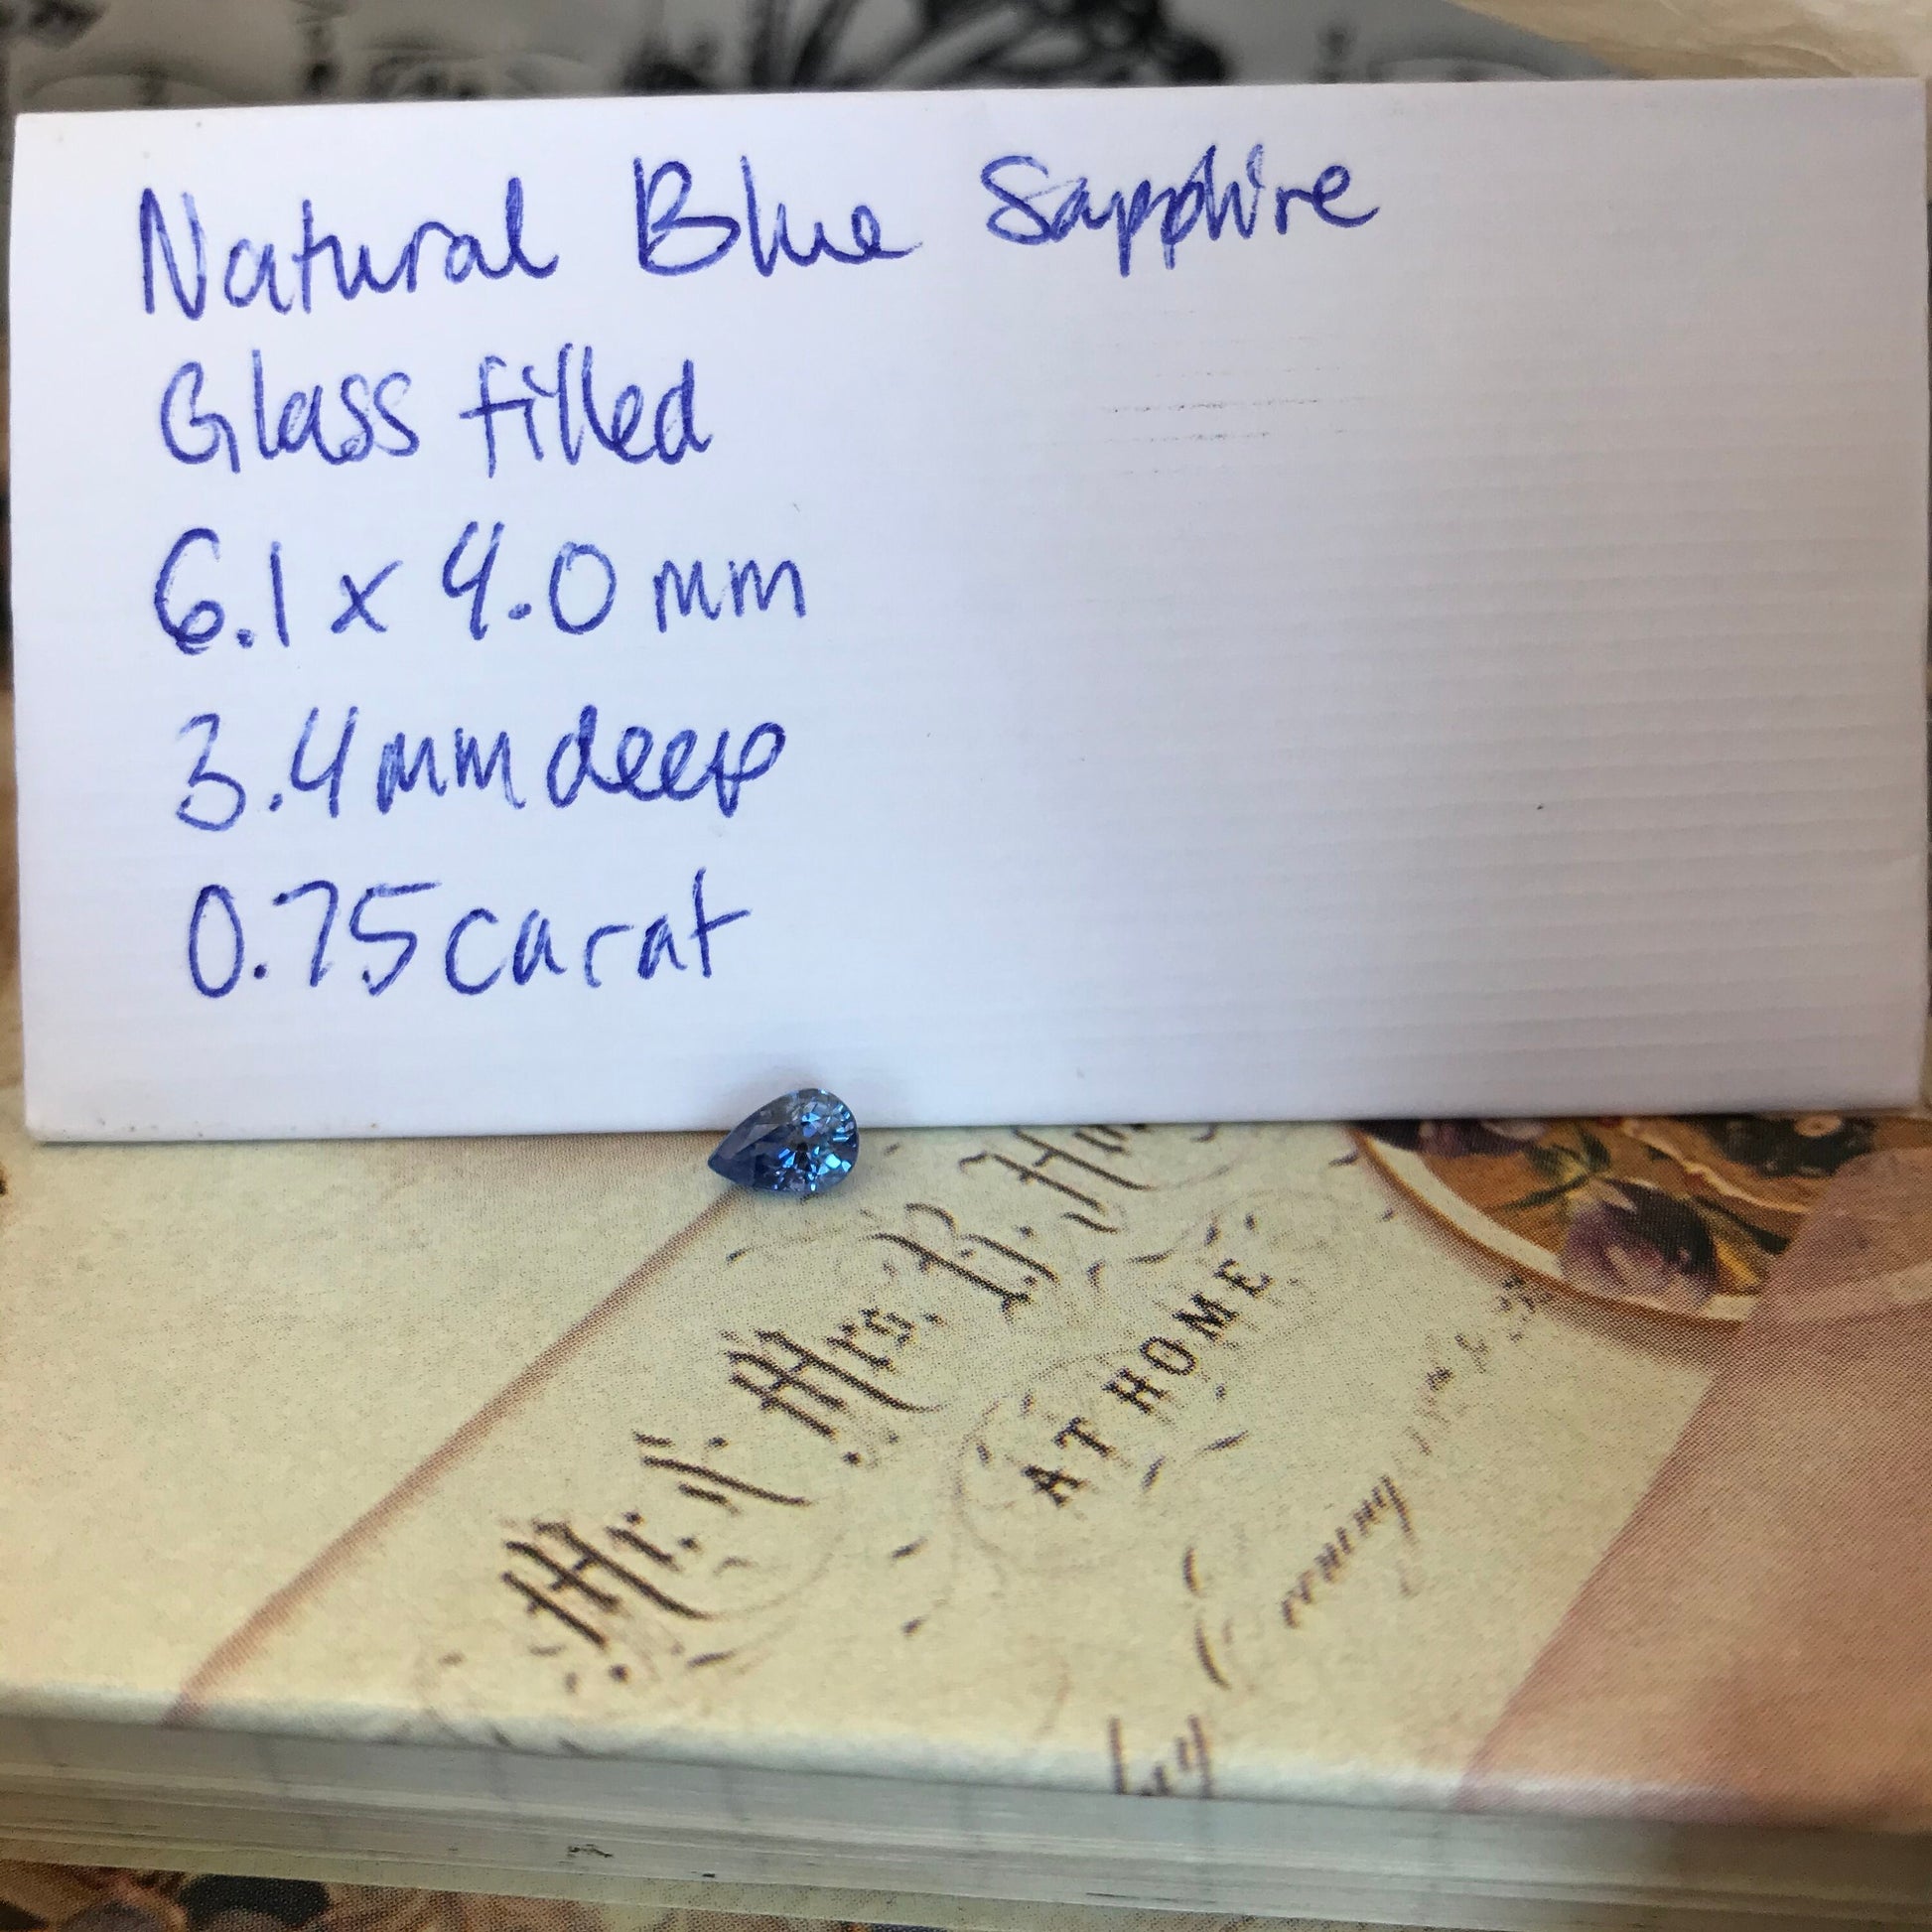 Natural Blue Sapphire
Glass filled
6.1 x 4.0 mm
3.4 mm deep
0.75 carat
Mr. & Mrs. B.
AT HOME